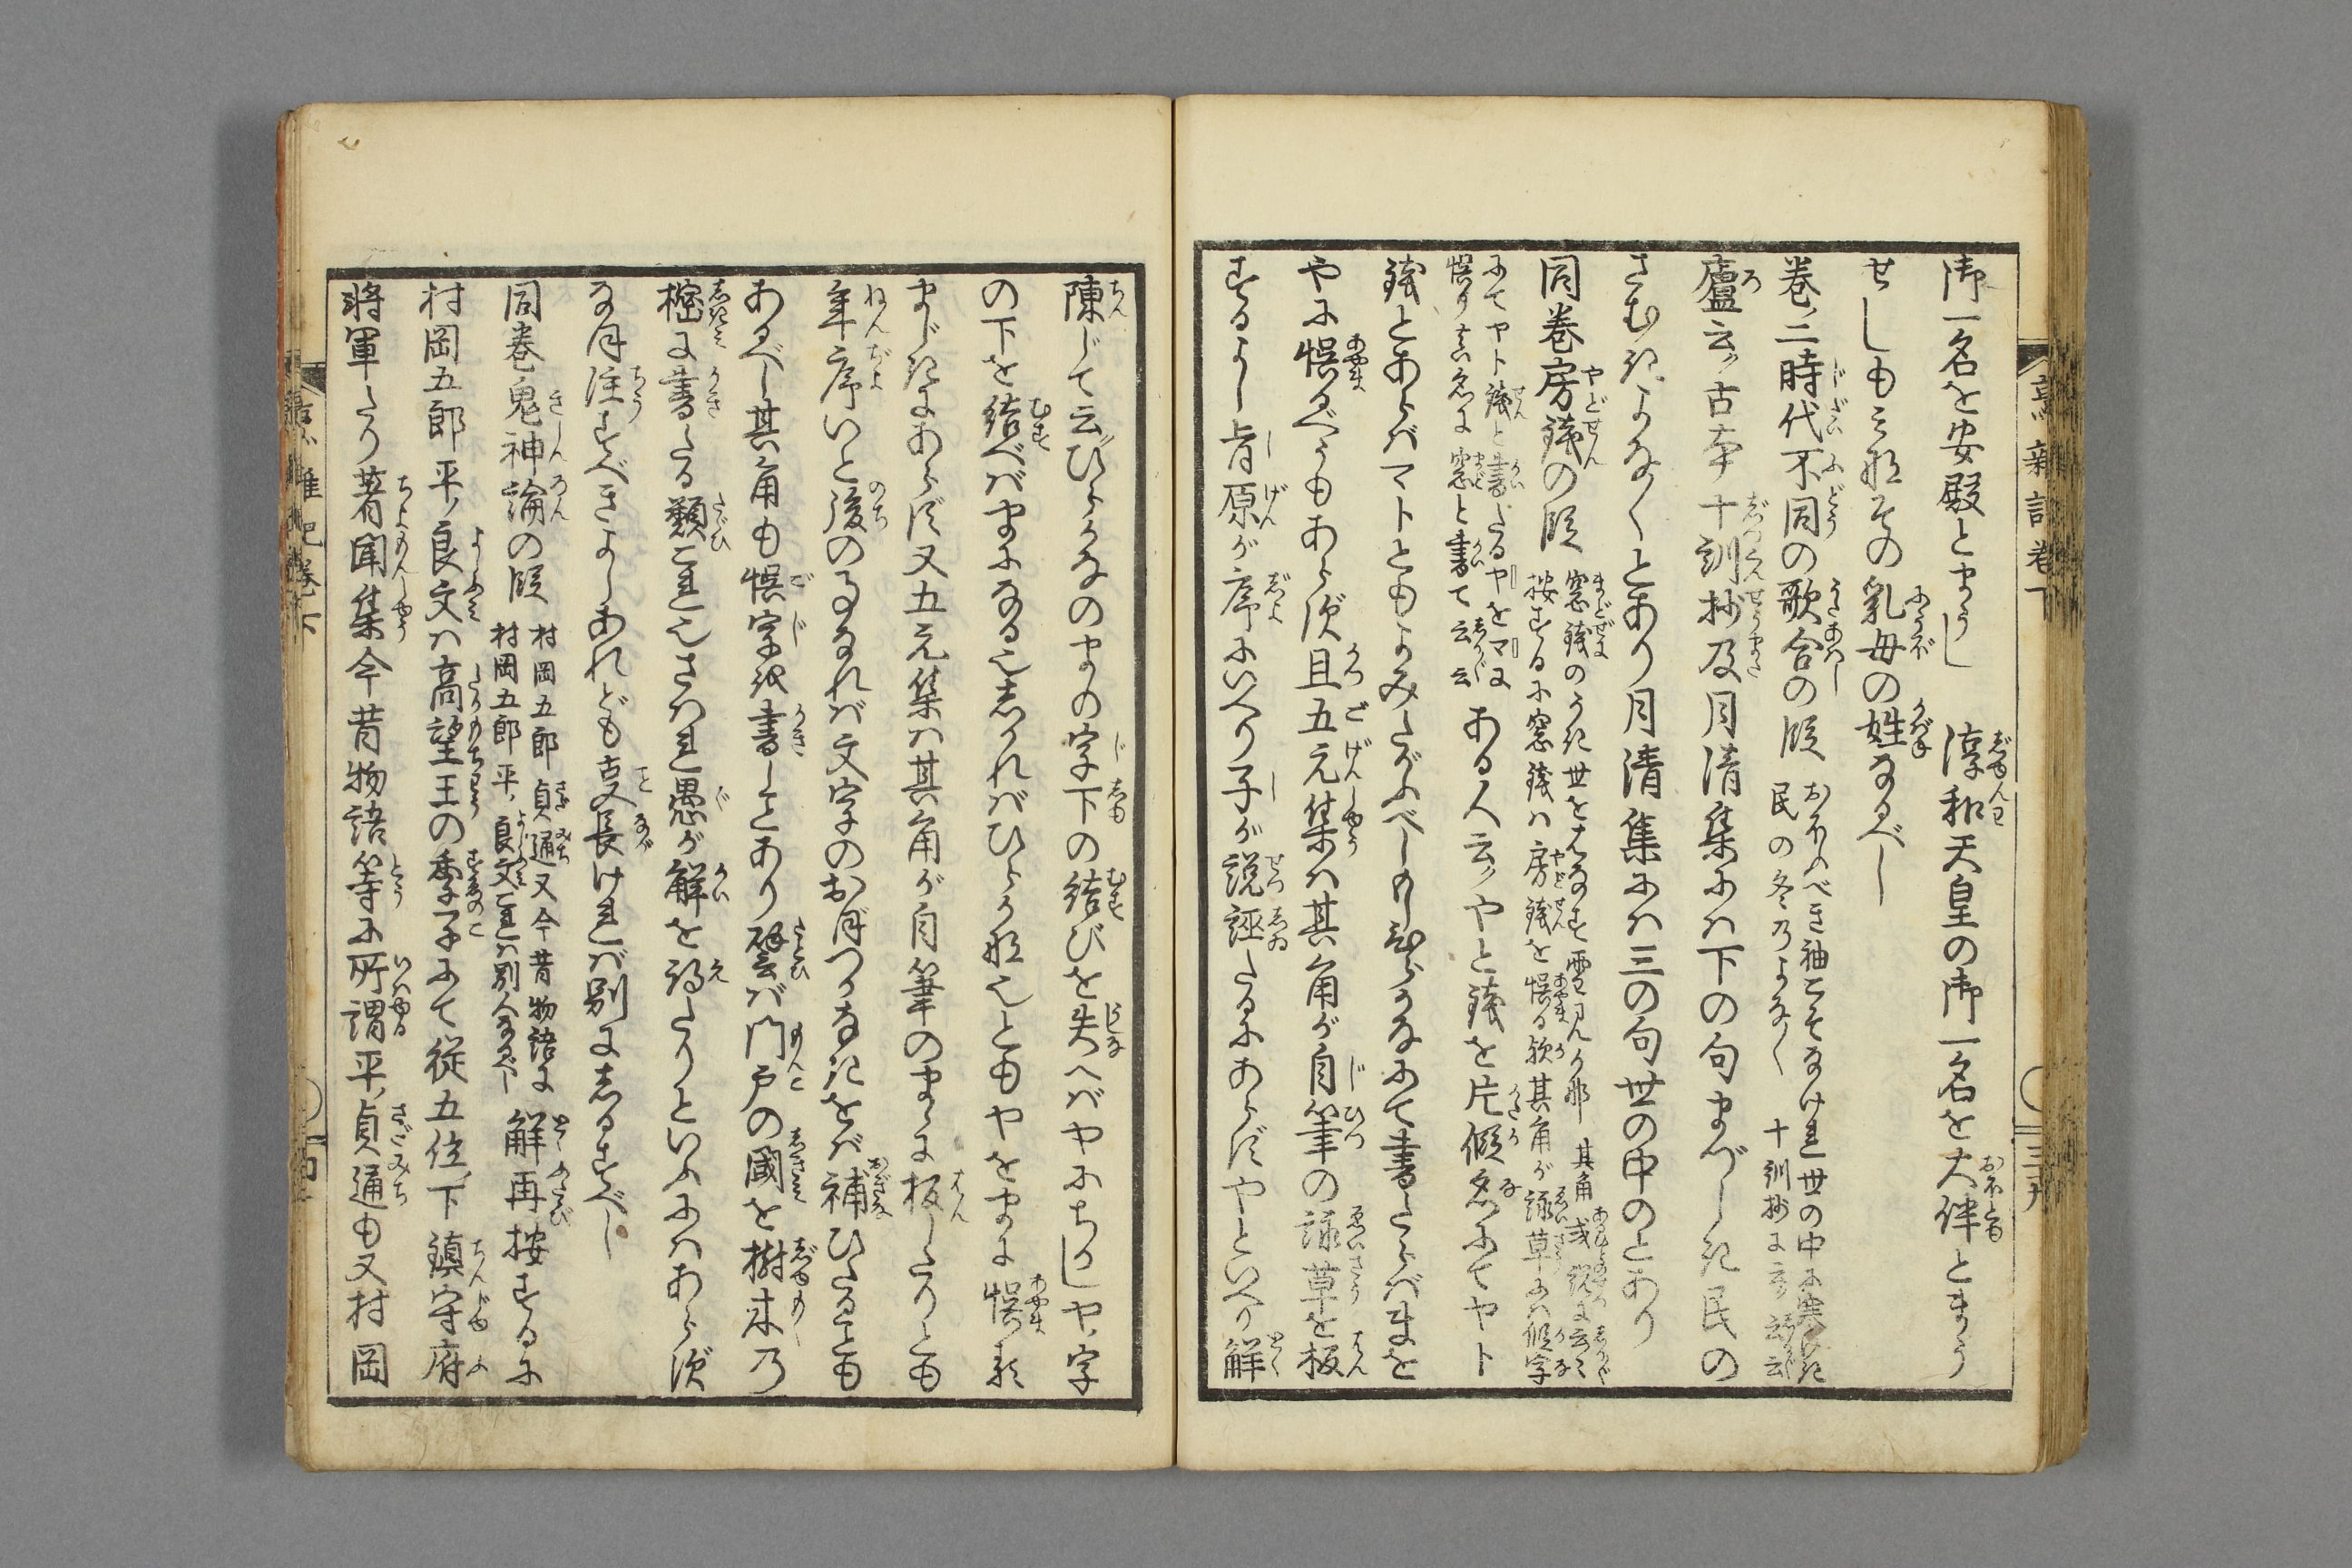 御一名を安殿とまうし 淳和天皇の御一名を大伴とまう
せしもみなその乳母の姓なるべし
巻ノ二時代不同の歌合の段 おほふべき袖こそなけれ世の中に
民の冬のよな〳〵 十訓抄に 云云
廬云ク古本十訓抄及月清集には下の句まづしき民の
さむきよな〳〵とあり月清集には三の句世の中のとあり
同巻房銭の段 窓銭のうき世をはなす雪見か那 其角 或説に云云
按ずるに窓銭は房銭を誤る歟其角が詠草には仮字
にてヤト銭と書たるヤをマに
誤り真名に窓と書て云云 ある人云クヤと銭を片假名にてヤト
銭とあらバマトともよみたがふべし
やは誤るべうもあらず且五元集は其角が自筆の詠草を板
するよし旨原が序にいへり子が説誣たるにあらずやといへり解
陳じて云ク ひらかなのまの字下の結びを失へばやにちかしや字
の下を結べばまになる也しかればひらかな也ともやをまに誤る
まじきにあらず又五元集は其角が自筆のまゝに板したりとも
年序いと後の事なれば文字のおぼつかなきをば補ひたるも
あるべし其角も誤字を書しことあり譬ば門戸の閾を樹木の
樒に書たる類これ也さはれ愚が解を得たりといふにはあらず
なほ注すべきよしあれども言長ければ別にしるすべし
同巻鬼神論の段 村岡五郎貞通又今昔物語に
村岡五郎平ノ良文これは別人なるべし 解再按ずるに
村岡五郎平ノ良文は高望王の季子にて従五位ノ下鎮守府
将軍たり著聞集今昔物語等に所謂平ノ貞通も又村岡